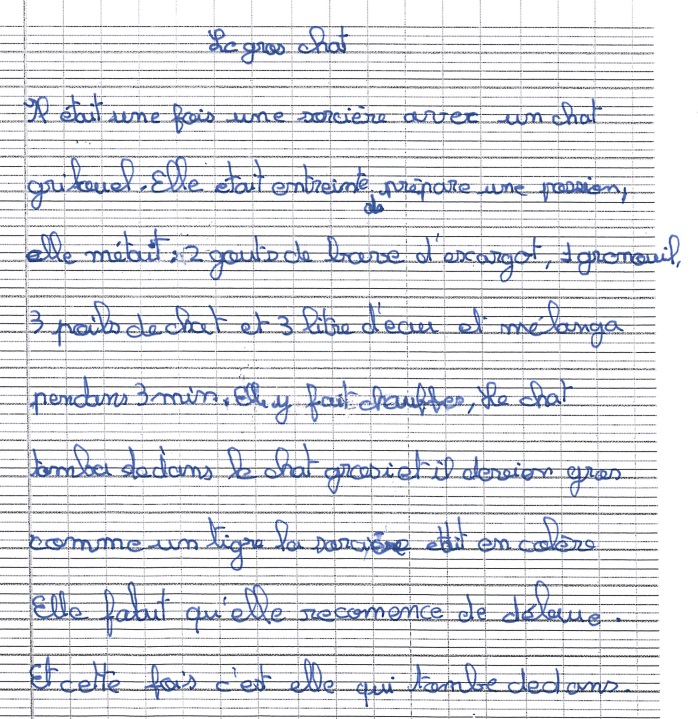 Le gros chat
Il était une fois une sorcière avec un chat
gribouel. Elle était entreinte de prépare une possion,
elle métait : 2 goute de bave d'escargot, 1 gronouil,
3 poils de chat et 3 litre d'eau et mélanga
pendans 3 min. Elle y fait chauffer, le chat
tomba dedans le chat grosiet il devion gros
comme un tigre la sorcière etit en colère
Elle falut qu'elle recomence de
Et cette fois c'est elle qui tombe dedans.